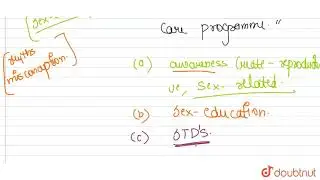 Sex-
Care programme."
myths
misconception.
(a) awareness (mate - reproducti
ve, sex- related.
(b) Sex-education.
(c) STD's.
doubtnut